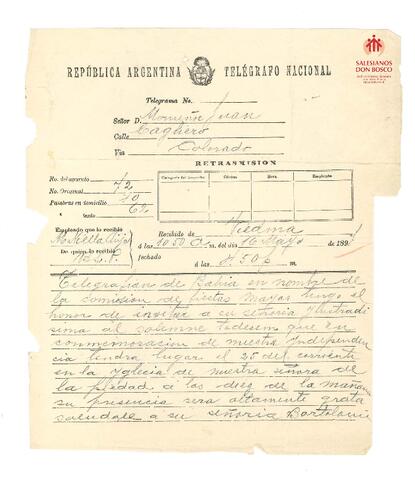 REPÚBLICA ARGENTINA TELÉGRAFO NACIONAL
SALESIANOS
DON BOSCO
Telegrama No.
Señor D. Monseñor Juan
Calle Cagliero
Vía Colorado
RETRASMISION
No. del aparato
No. Original 72
Palabras en domicilio 10
" texto 62
Categoría del despacho Oficina Hora Empleado
Empleado que lo recibió
De quien lo recibió
Recibido de Viedma
á las 10 50 m. del día 16 Mayo de 189
fechado á las 8.50 p m.
Telegrafian de Bahia en nombre de
la comision de fiestas Mayas tengo el
honor de invitar a su señoria Ylustradi
sima al solemne tedeum que en
conmemorasion de nuestra Independen
cia tendra lugar el 25 del corriente
en la Yglecia de nuestra señora de
la piedad a las diez de la mañana
su presencia sera altamente grata
saludale a su señoria Bartolome